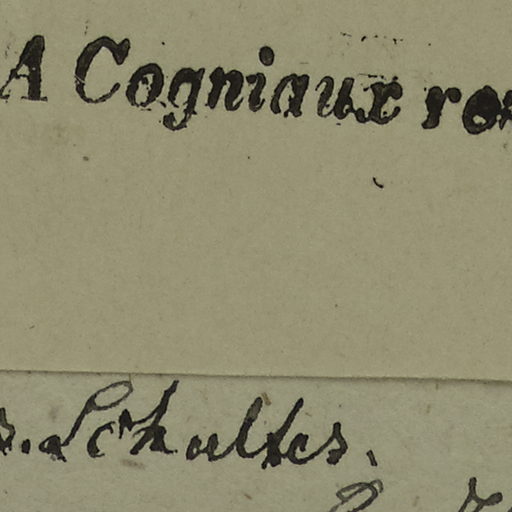 A Cogniaux re
s. Schultes.